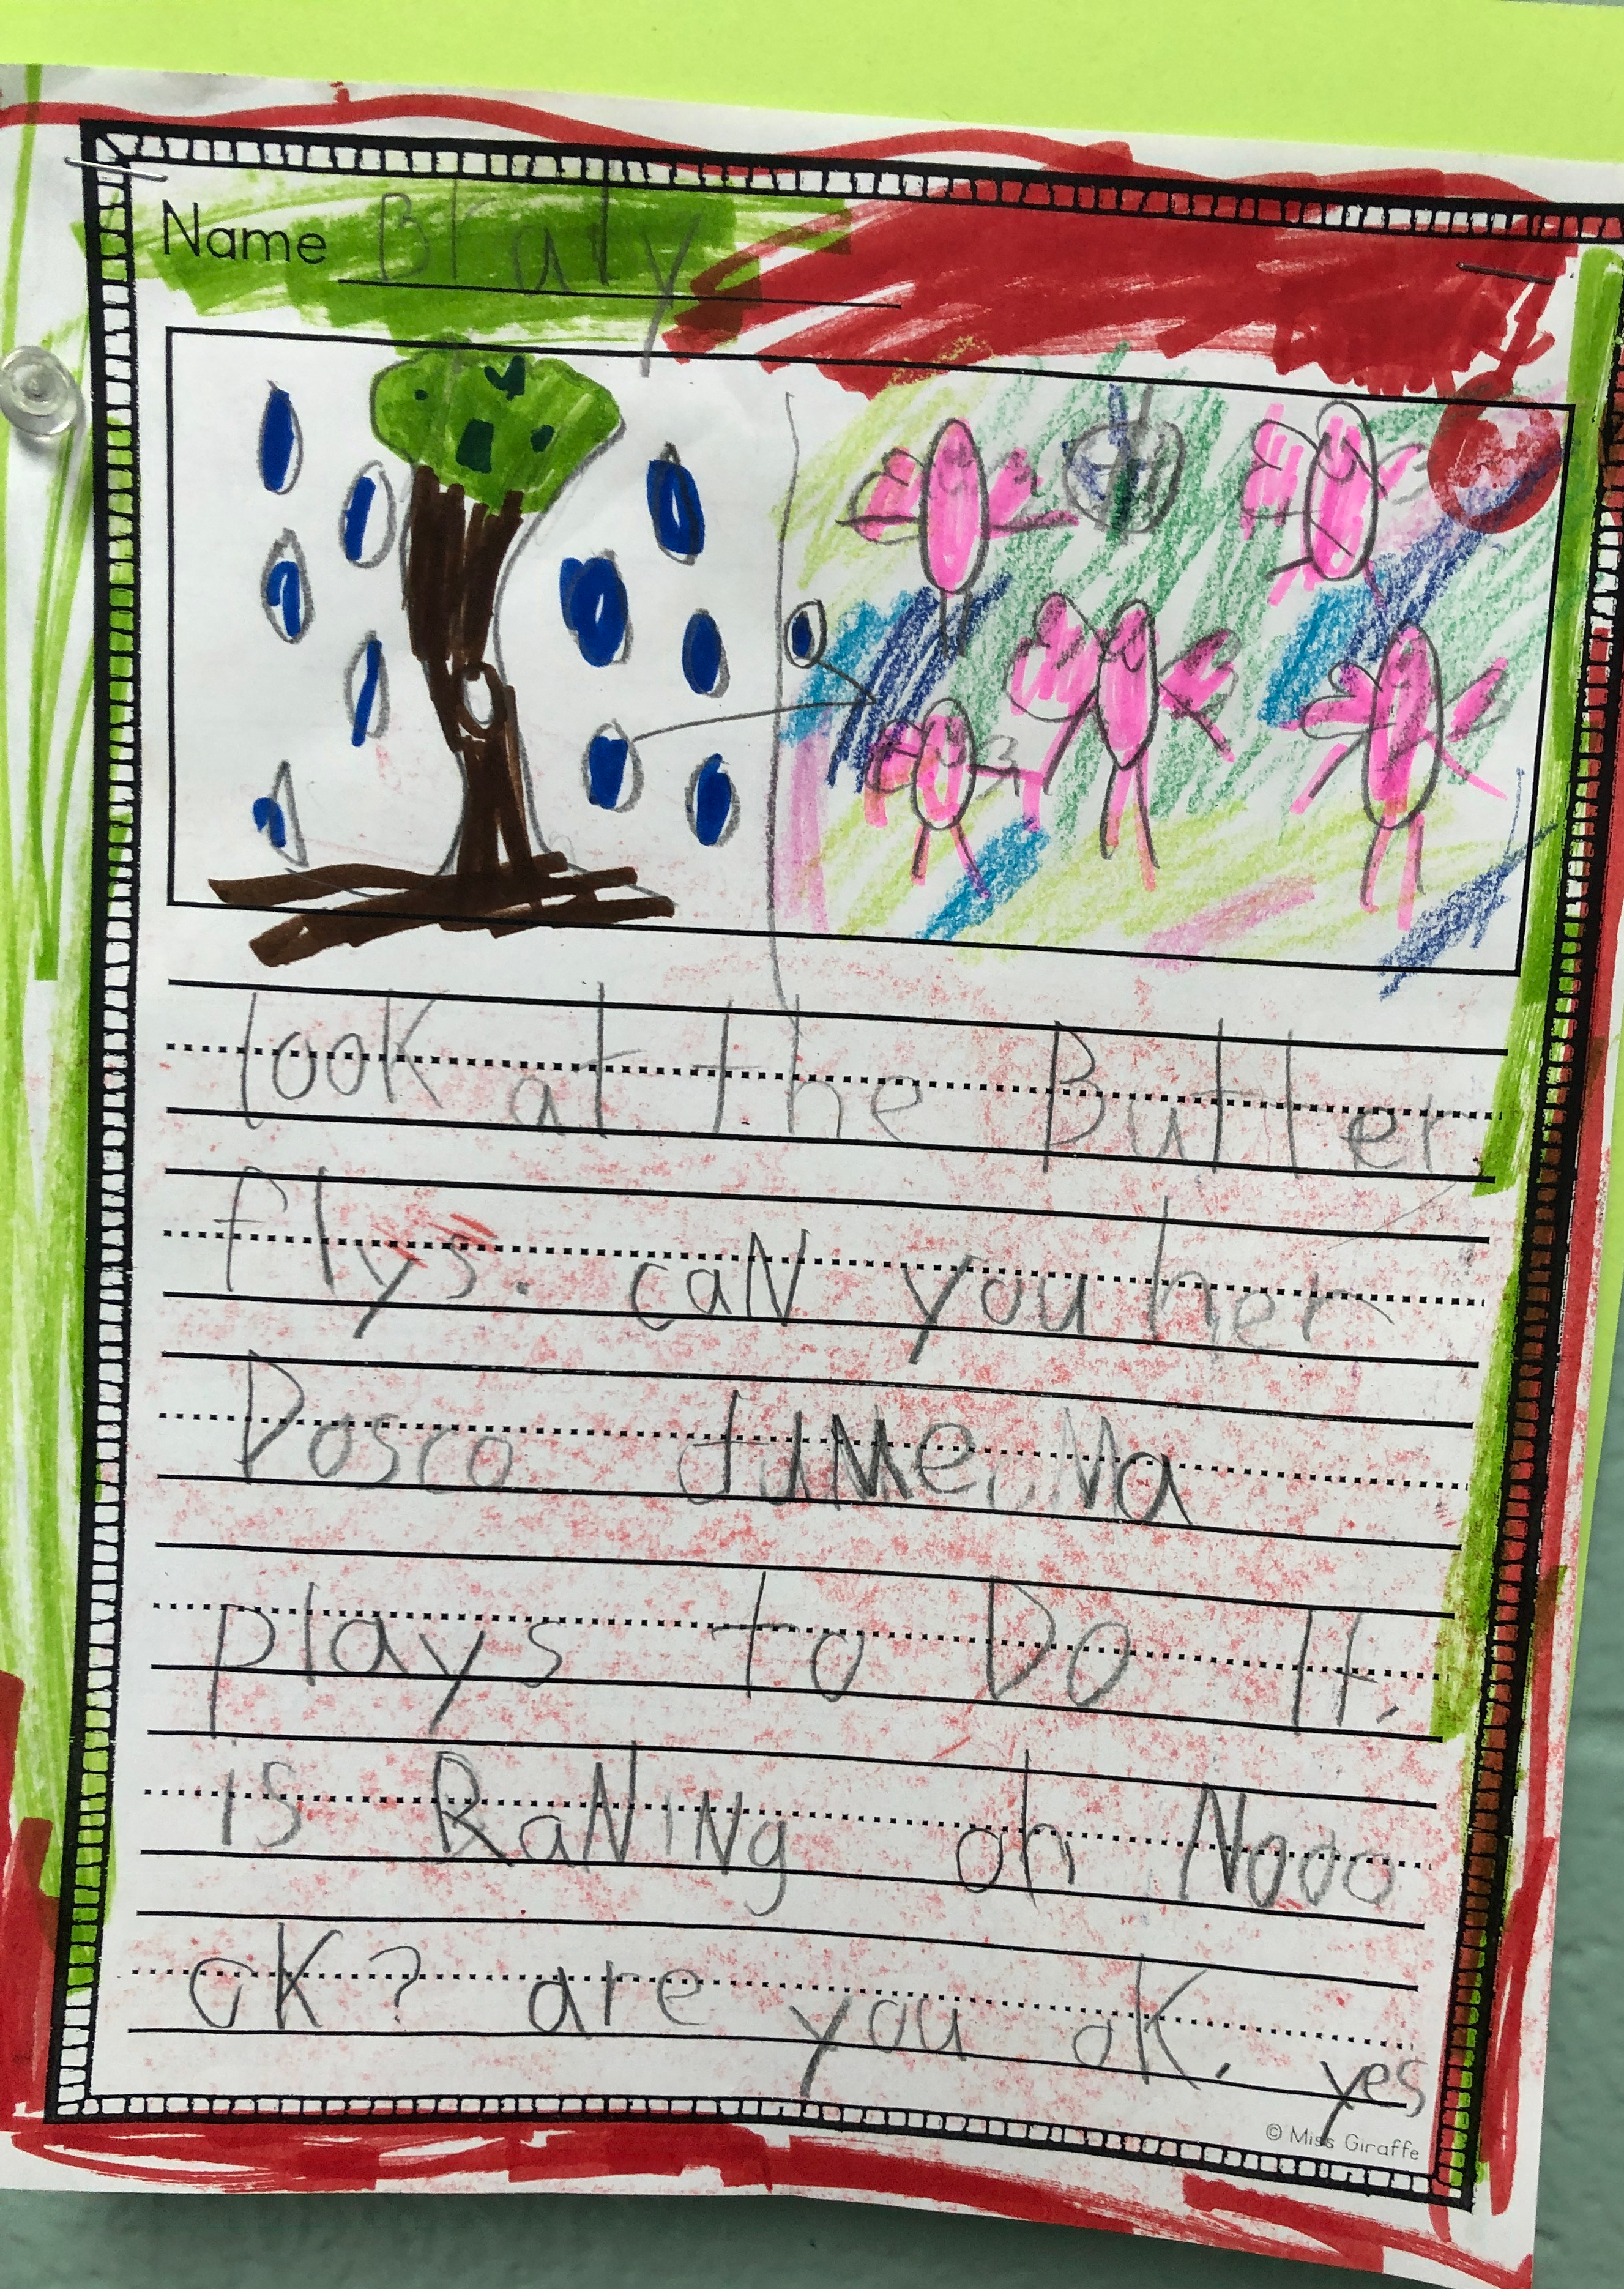 Name Braty
look at the Butter
flys. caN you her
Dosco tuMe. Ma
plays to Do It.
is RaNiNg oh Nooo
oK? are you oK. yes
© Miss Giraffe